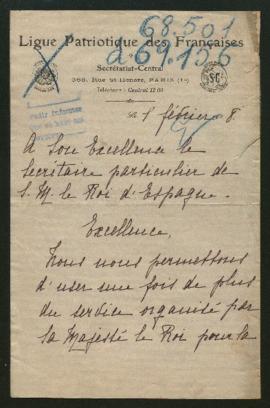 68.501
Ligue Patriotique des Françaises
d 69.156
Secrétariat-Central
368, Rue St-Honoré, PARIS (1er)
Téléphone: Central 12 60
1 février 8.
A Son Excellence le
Secrétaire particulier de
S. M. le Roi d'Espagne.
Excellence,
Nous nous permettons
d'user une fois de plus
du service organisé par
sa Majesté le Roi pour la